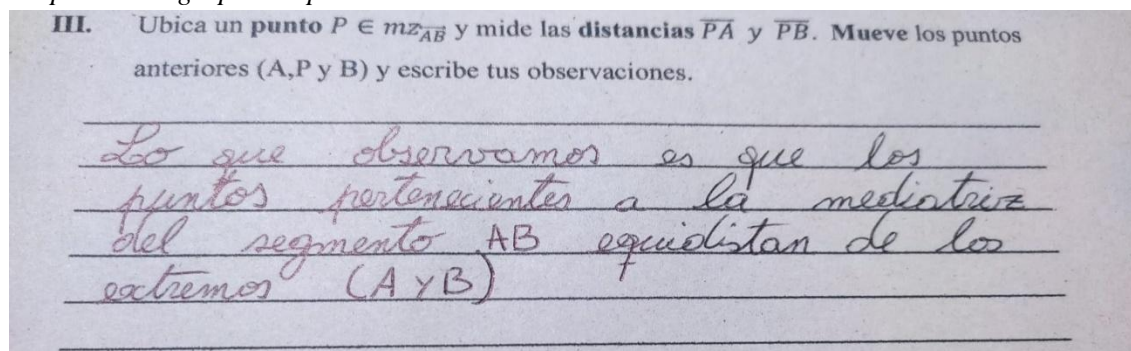 III. Ubica un punto P ∈ mz_AB y mide las distancias PA y PB. Mueve los puntos
anteriores (A,P y B) y escribe tus observaciones.
Lo que observamos es que los
puntos pertenecientes a la mediatriz
del segmento AB equidistan de los
extremos (A y B)